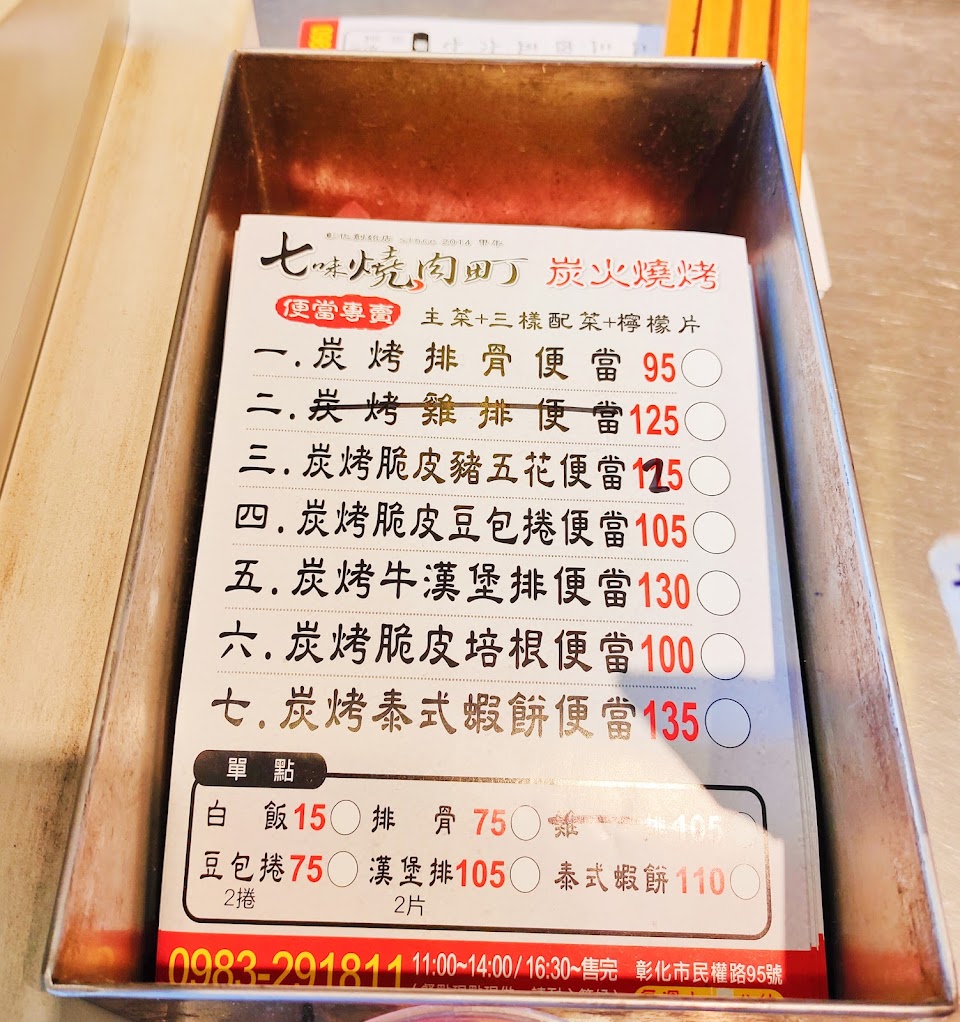 七味燒肉町 炭火燒烤
便當專賣 主菜+三樣配菜+檸檬片
一.炭烤排骨便當 95
二.炭烤雞排便當 125
三.炭烤脆皮豬五花便當 125
四.炭烤脆皮豆包捲便當 105
五.炭烤牛漢堡排便當 130
六.炭烤脆皮培根便當 100
七.炭烤泰式蝦餅便當 135
單點
白飯 15 排骨 75 雞排 105
豆包捲 75 漢堡排 105 泰式蝦餅 110
2捲 2片
0983-291811 11:00~14:00/16:30~售完 彰化市民權路95號